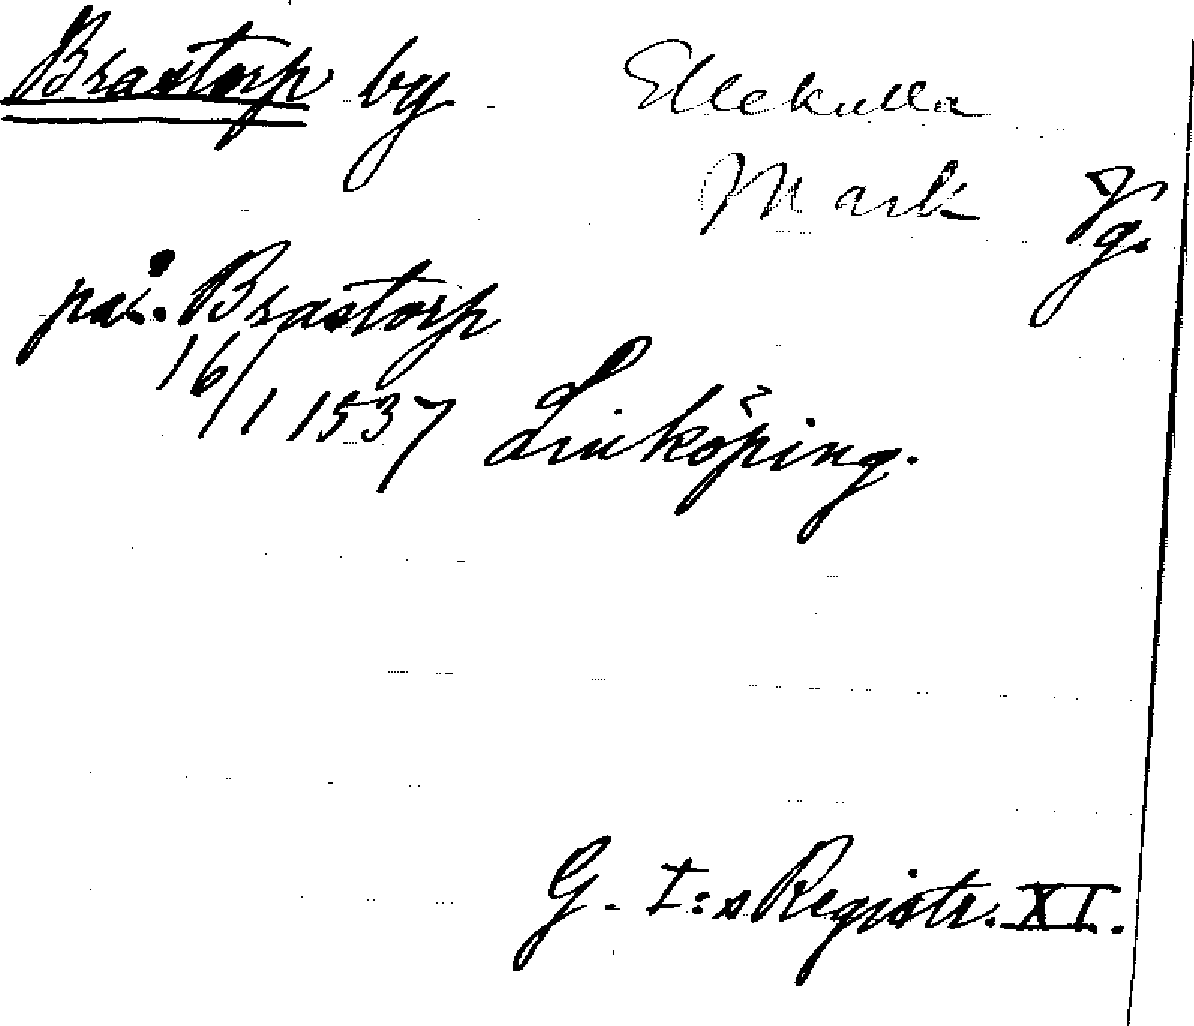 Brastorp by Ellekulla
Mark Vg.
på. Brastorp
16/1 1537 Linköping.
G. I:s Registr. XI.